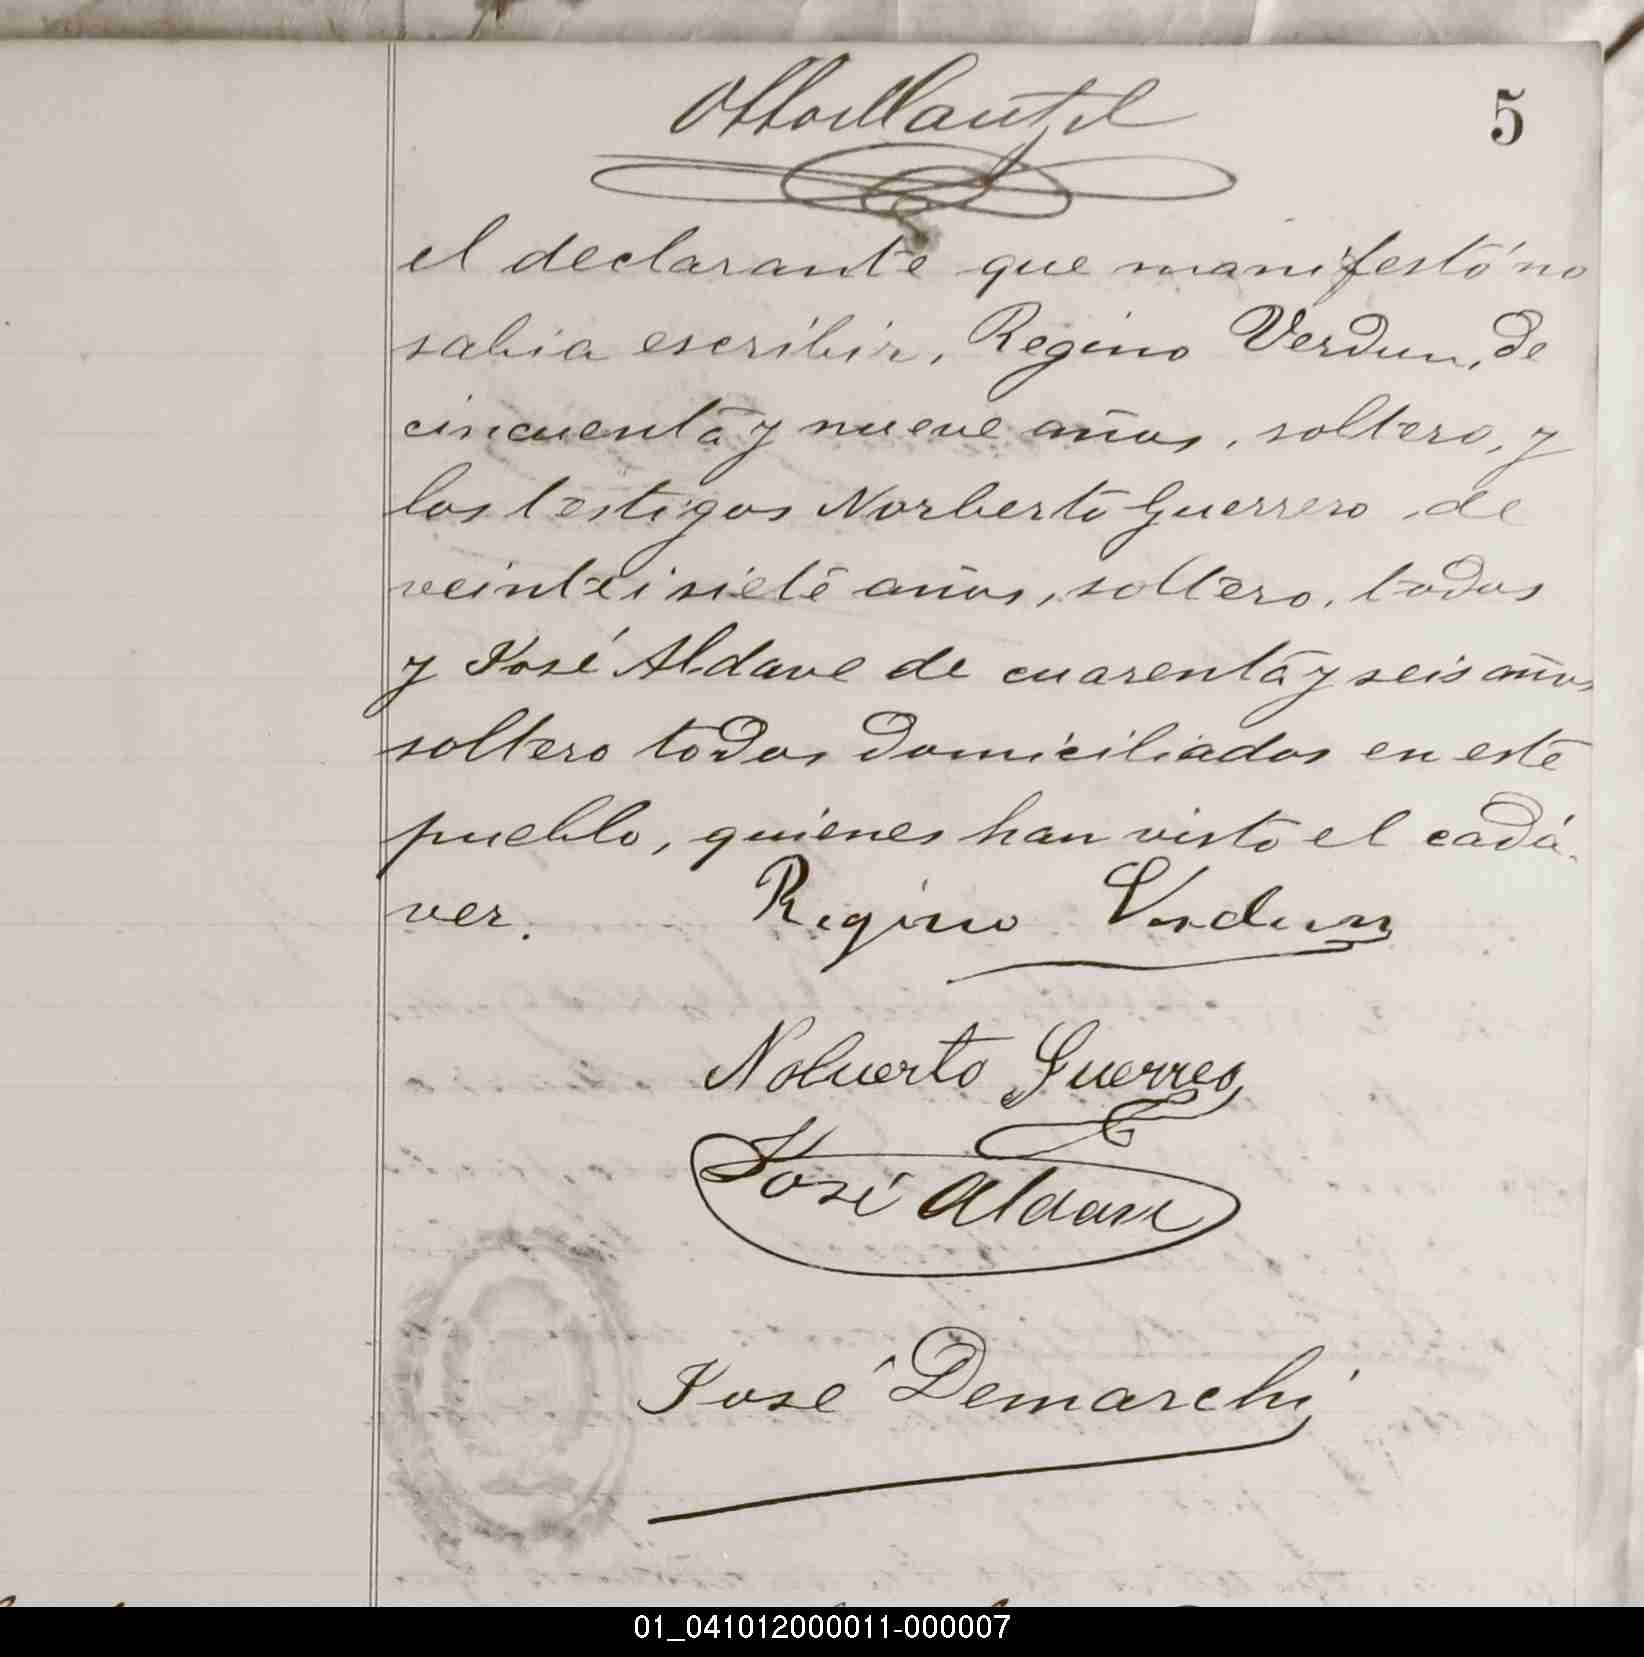 5
el declarante que manifestó no
sabia escribir, Regino Verdun, de
cincuenta y nueve años, soltero, y
los testigos Norberto Guerrero, de
veintisiete años, soltero, todos
y José Aldave de cuarenta y seis años
soltero todos domiciliados en este
pueblo, quienes han visto el cadá-
ver. Regino Verdun
Nolverto Guerrero
José Aldave
José Demarchi
01_041012000011-000007